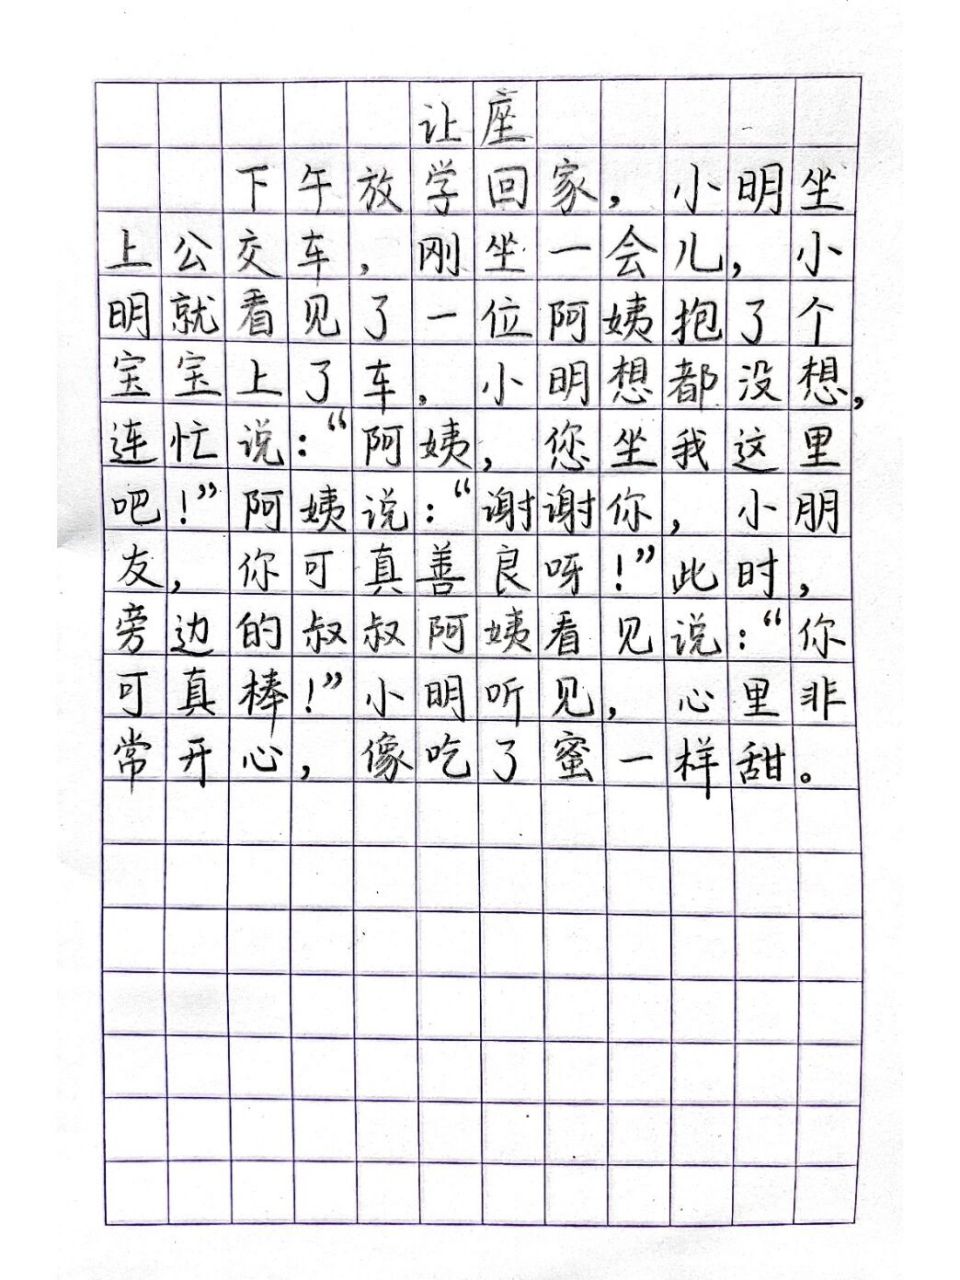 让座
下午放学回家，小明坐
上公交车，刚坐一会儿，小
明就看见了一位阿姨抱了个
宝宝上了车，小明想都没想，
连忙说：“阿姨，您坐我这里
吧！”阿姨说：“谢谢你，小朋
友，你可真善良呀！”此时，
旁边的叔叔阿姨看见说：“你
可真棒！”小明听见，心里非
常开心，像吃了蜜一样甜。